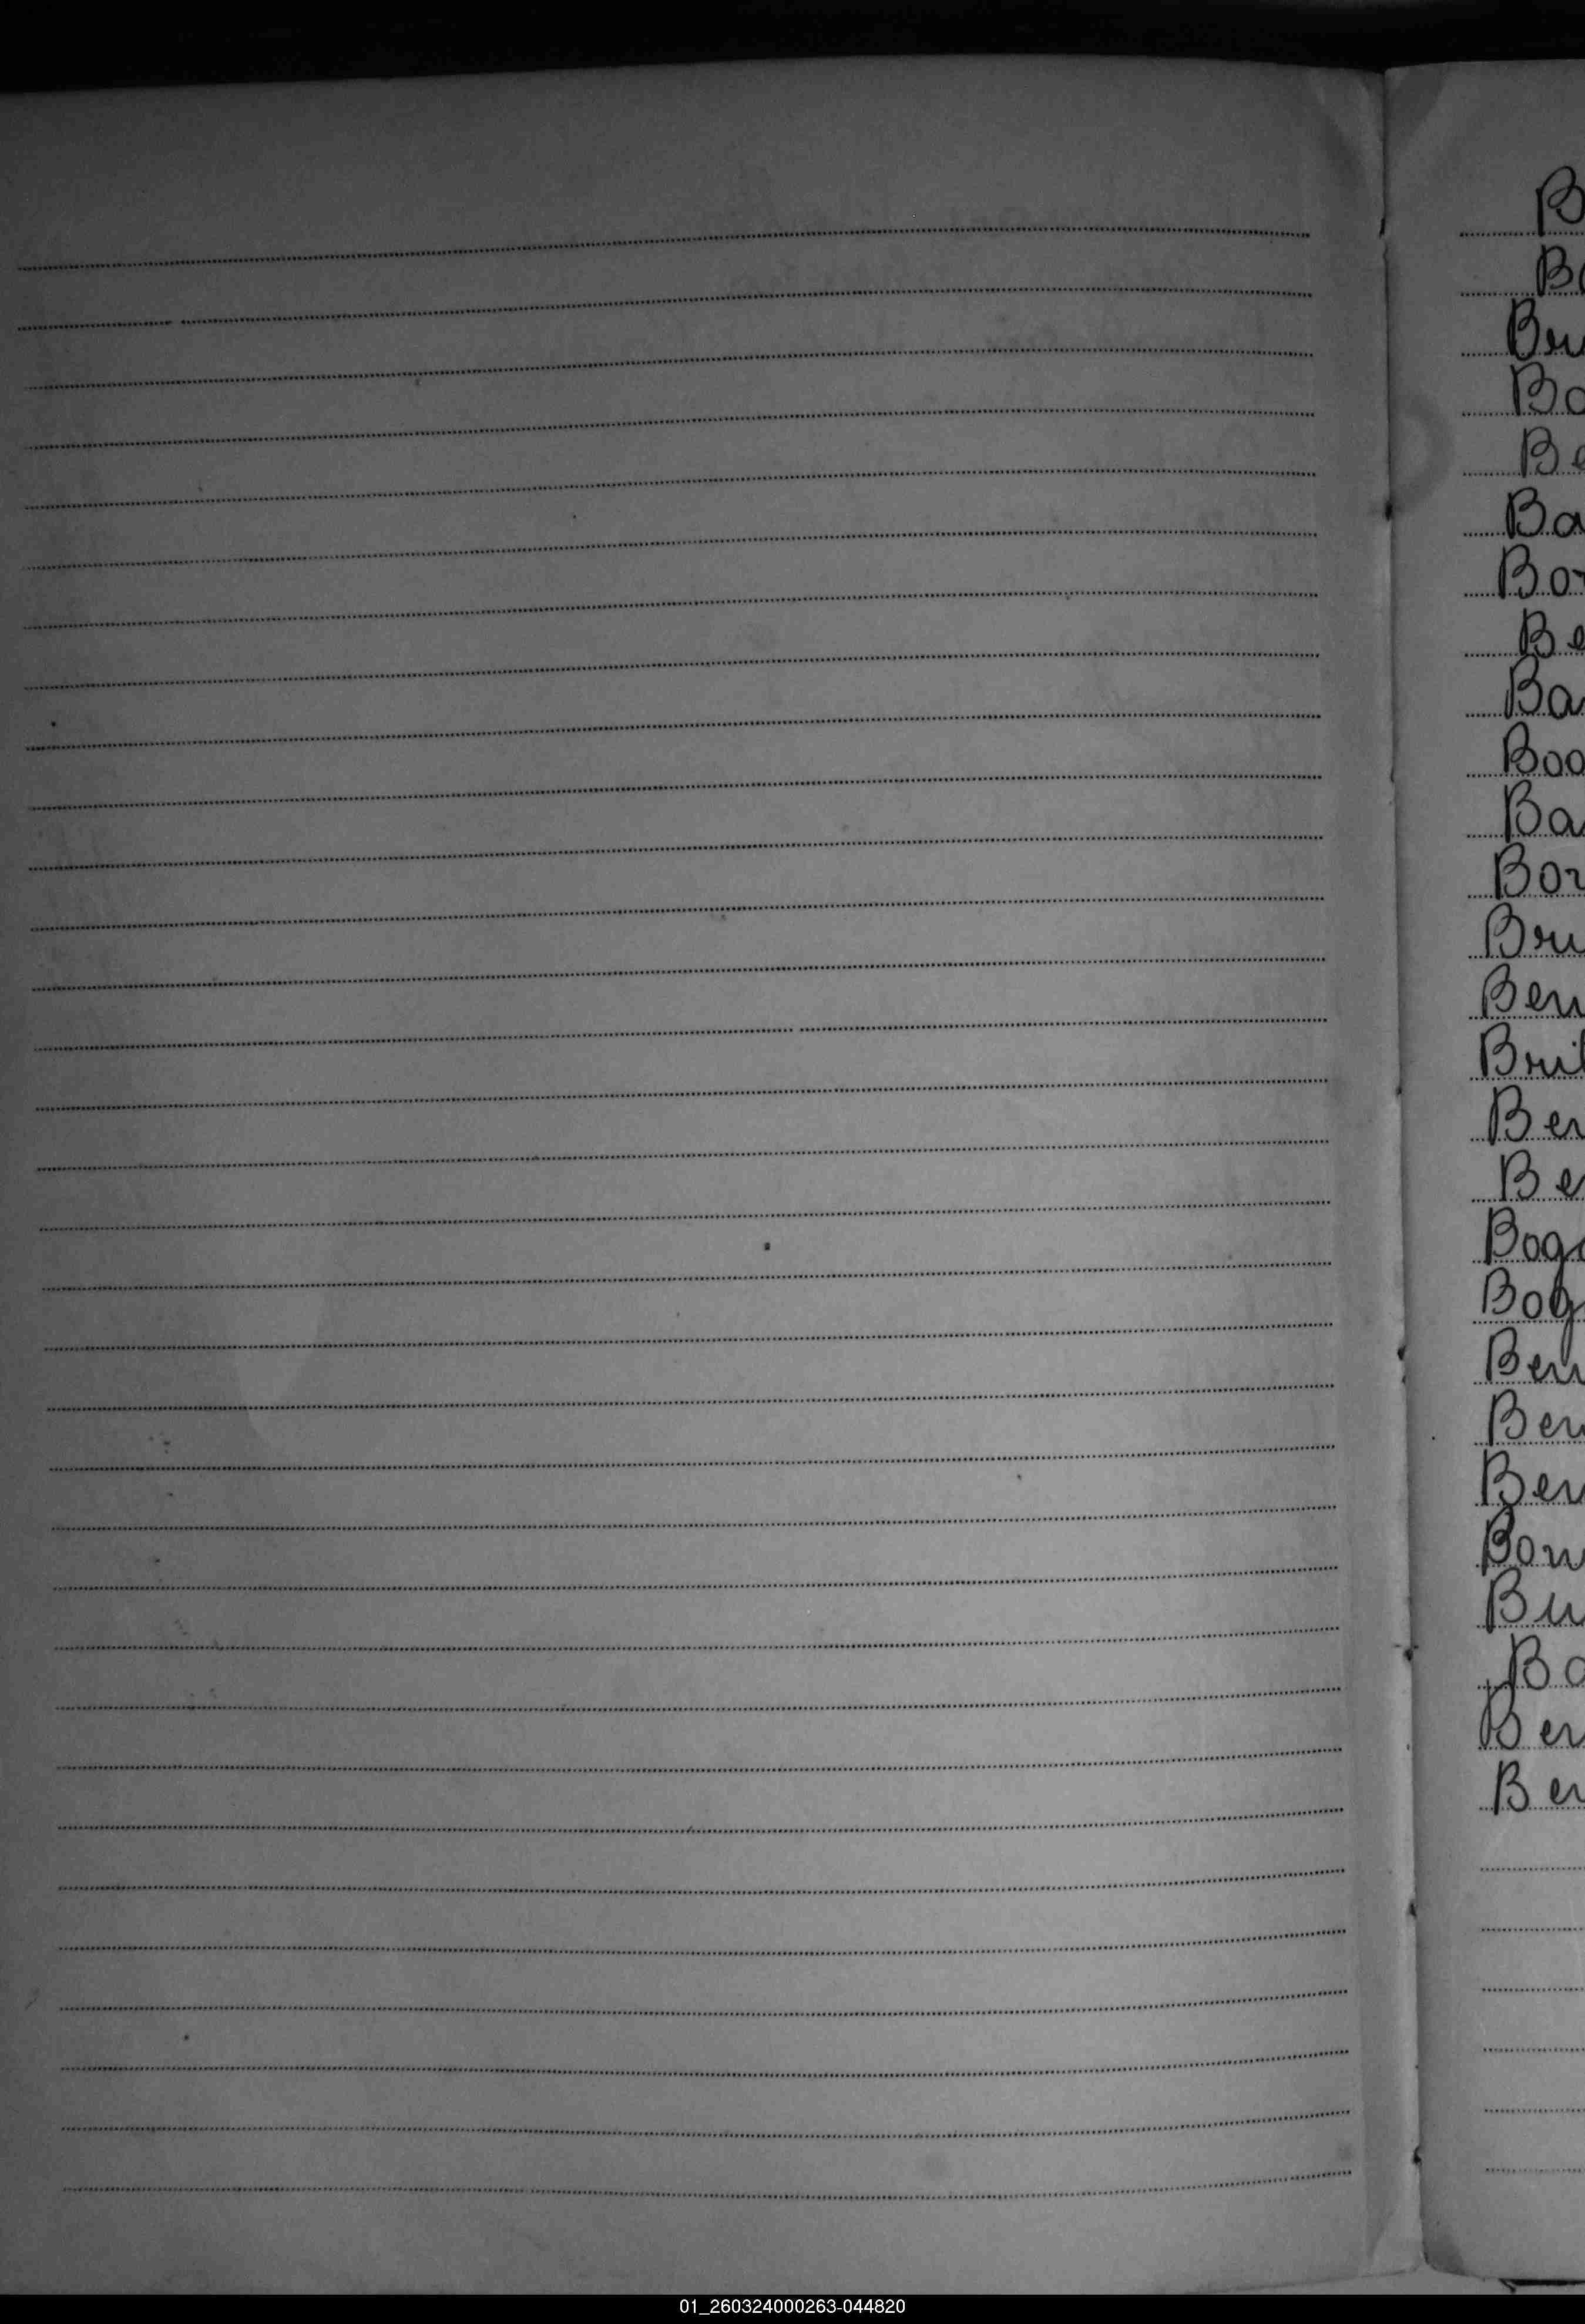 B
Bo
Bru
Bo
Be
Ba
Bor
Be
Ba
Boo
Ba
Bor
Bru
Ber
Bril
Ber
Be
Bog
Bog
Ber
Ber
Ber
Bon
Bu
Bo
Ber
Ber
01_260324000263-044820